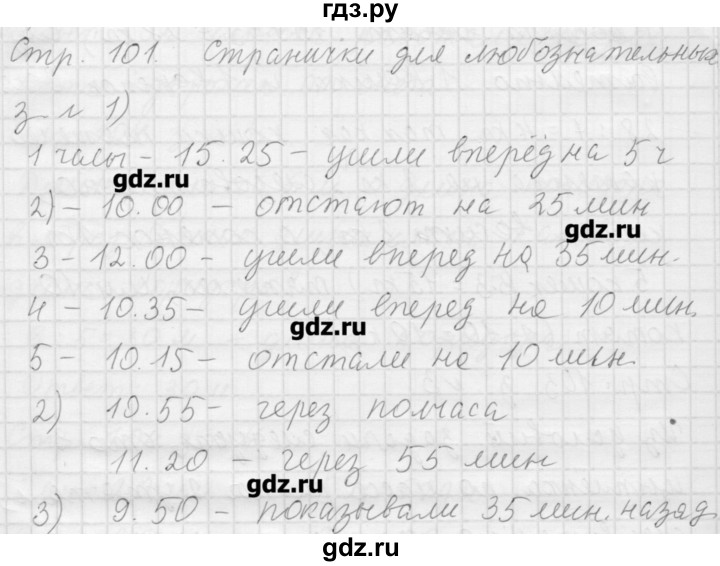 гдз.ру
Стр. 101. Странички для любознательных
1)
1 часы – 15.25 – ушли вперёд на 5 ч
gdz.ru
2) – 10.00 – отстают на 25 мин
gdz.ru
3 – 12.00 – ушли вперед на 35 мин.
4 – 10.35 – ушли вперед на 10 мин.
gdz.ru
5 – 10.15 – отстали на 10 мин.
2) 10.55 – через полчаса
11.20 – через 55 мин
gdz.ru
3) 9.50 – показывали 35 мин. назад
gdz.ru